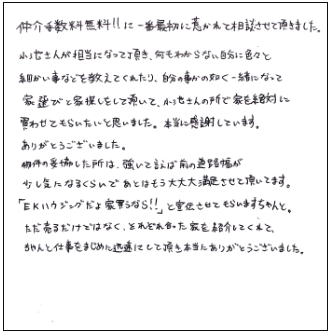 仲介手数料無料!!に一番最初に惹かれて相談させて頂きました。
小笠さんが相当になって頂き、何もわからない自分に色々と
細かい事などを教えてくれたり、自分の事かの如く一緒になって
家選びと家探しをして頂いて、小笠さんの所で家を絶対に
買わせてもらいたいと思いました。本当に感謝しています。
ありがとうございました。
物件の妥協した所は、強いて言えば前の道路幅が
少し気になるくらいであとはもう大大大満足させて頂いてます。
「EKハウジングだよ家買うなら!!」と宣伝させてもらいますちゃんと。
ただ売るだけではなく、それぞれ合った家を紹介してくれて、
ちゃんと仕事をまじめに迅速にして頂き本当にありがとうございました。